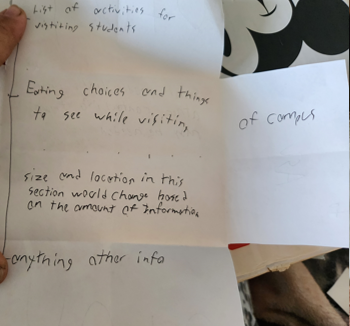 - List of activities for
visiting students
- Eating choices and things
to see while visiting
of campus
size and location in this
section would change based
on the amount of information
- anything other info